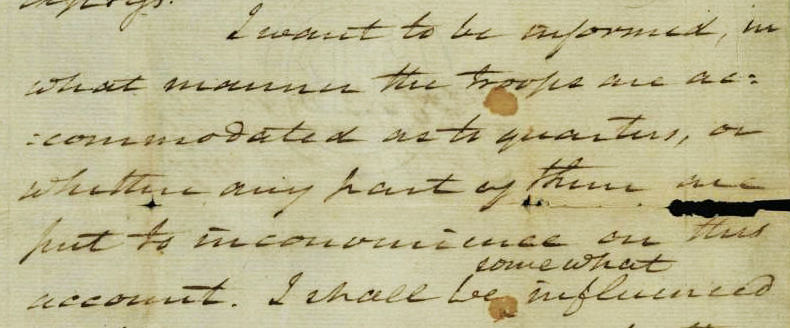 I want to be informed, in
what manner the troops are ac=
=commodated as to quarters, or
whether any part of them are
put to inconvenience on this
somewhat
account. I shall be influenced